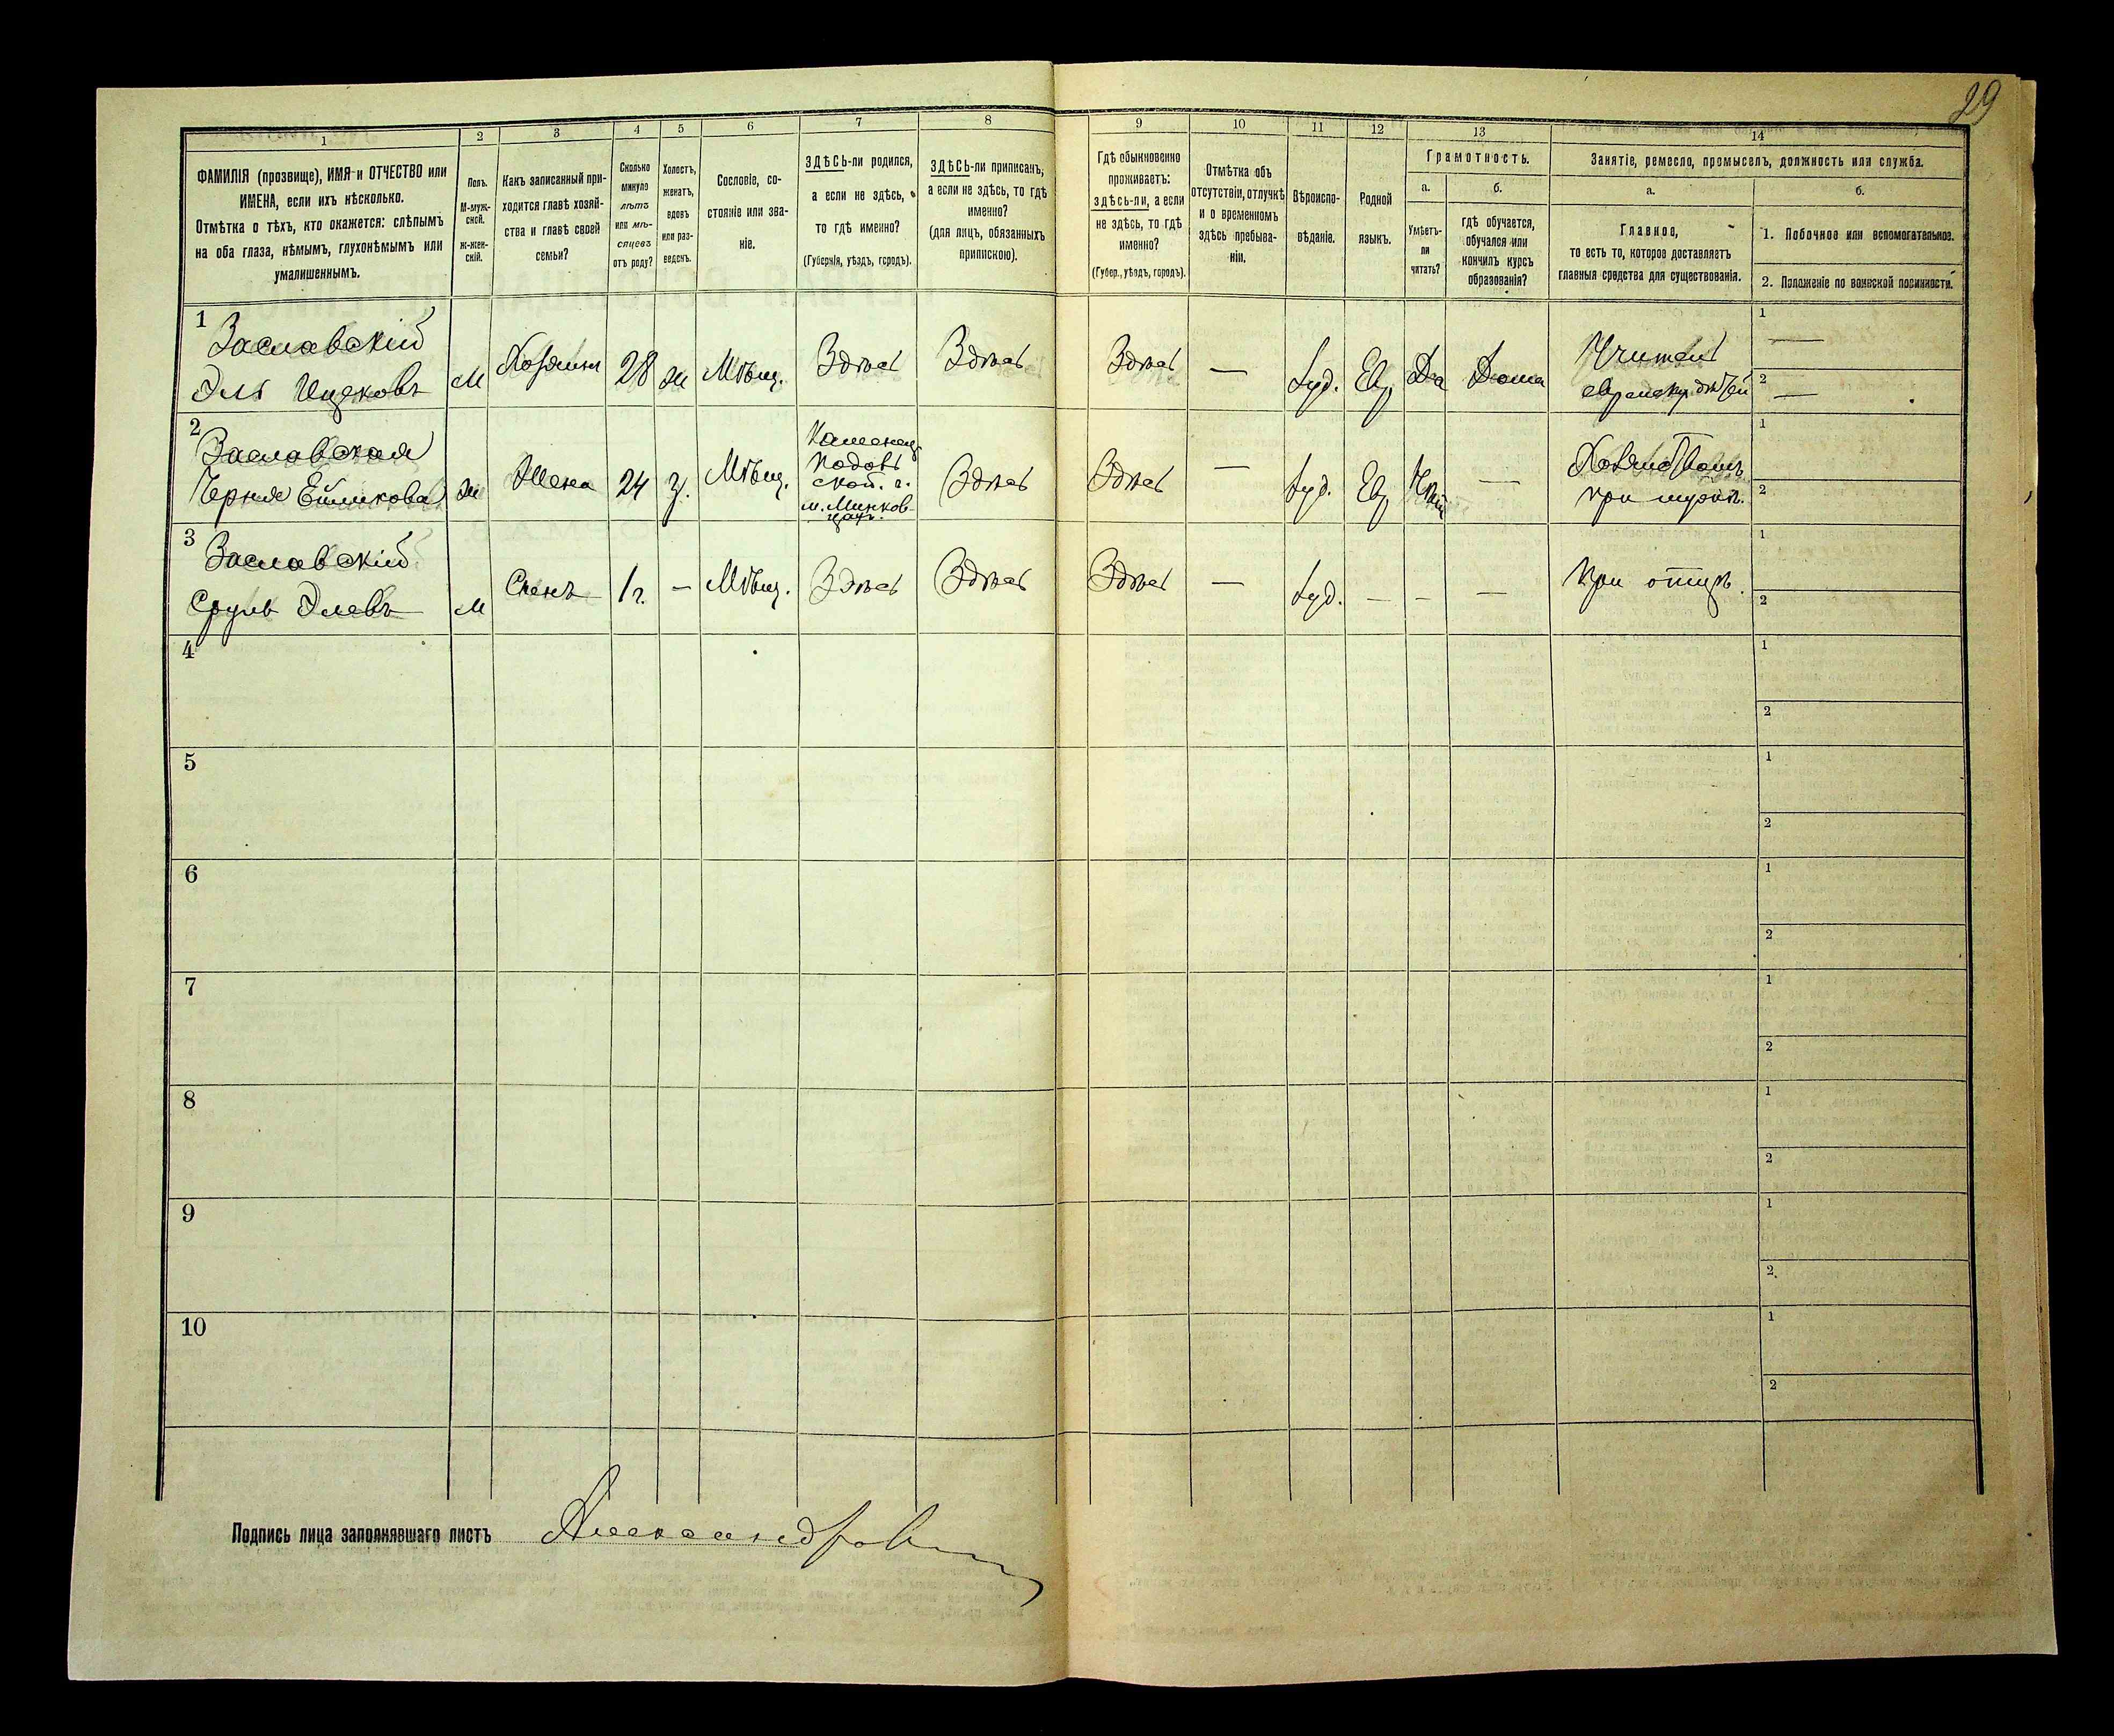 29
1 2 3 4 5 6 7 8 9 10 11 12 13 14
ФАМИЛІЯ (прозвище), ИМЯ и ОТЧЕСТВО или
ИМЕНА, если ихъ нѣсколько.
Отмѣтка о тѣхъ, кто окажется: слѣпымъ
на оба глаза, нѣмымъ, глухонѣмымъ или
умалишеннымъ.
Полъ.
М-муж-
ской.
Ж-жен-
скій.
Какъ записанный при-
ходится главѣ хозяй-
ства и главѣ своей
семьи?
Сколько
минуло
лѣтъ
или мѣ-
сяцевъ
отъ роду?
Холостъ,
женатъ,
вдовъ
или раз-
веденъ.
Сословіе, со-
стояніе или зва-
ніе.
ЗДѢСЬ-ли родился,
а если не здѣсь,
то гдѣ именно?
(Губернія, уѣздъ, городъ).
ЗДѢСЬ-ли приписанъ,
а если не здѣсь, то гдѣ
именно?
(для лицъ, обязанныхъ
припискою).
Гдѣ обыкновенно
проживаетъ:
здѣсь-ли, а если
не здѣсь, то гдѣ
именно?
(Губер., уѣздъ, городъ).
Отмѣтка объ
отсутствіи, отлучкѣ
и о временномъ
здѣсь пребыва-
ніи.
Вѣроиспо-
вѣданіе.
Родной
языкъ.
Грамотность.
а.
Умѣетъ-
ли
читать?
б.
гдѣ обучается,
обучался или
кончилъ курсъ
образованія?
Занятіе, ремесло, промыселъ, должность или служба.
а.
Главное,
то есть то, которое доставляетъ
главныя средства для существованія.
б.
1. Побочное или вспомогательное.
2. Положеніе по воинской повинности.
1
Заславскій
Эль Ицековъ
М
Хозяинъ
28
ж
Мѣщ.
Здѣсь
Здѣсь
Здѣсь
—
Іуд.
Евр
Да
Дома
Учитель
еврейскихъ дѣтей
1
—
2
—
2
Заславская
Черня
ж
Жена
24
З.
Мѣщ.
Каменец-
Подоль
ской. г.
м. Миньков-
цахъ.
Здѣсь
Здѣсь
—
Іуд.
Евр
—
при мужѣ.
1
2
3
Заславскій
Сруль Элевъ
М
Сынъ
1 г.
—
Мѣщ.
Здѣсь
Здѣсь
Здѣсь
—
Іуд.
—
—
—
при отцѣ.
1
2
4
1
2
5
1
2
6
1
2
7
1
2
8
1
2
9
1
2
10
1
2
Подпись лица заполнявшаго листъ